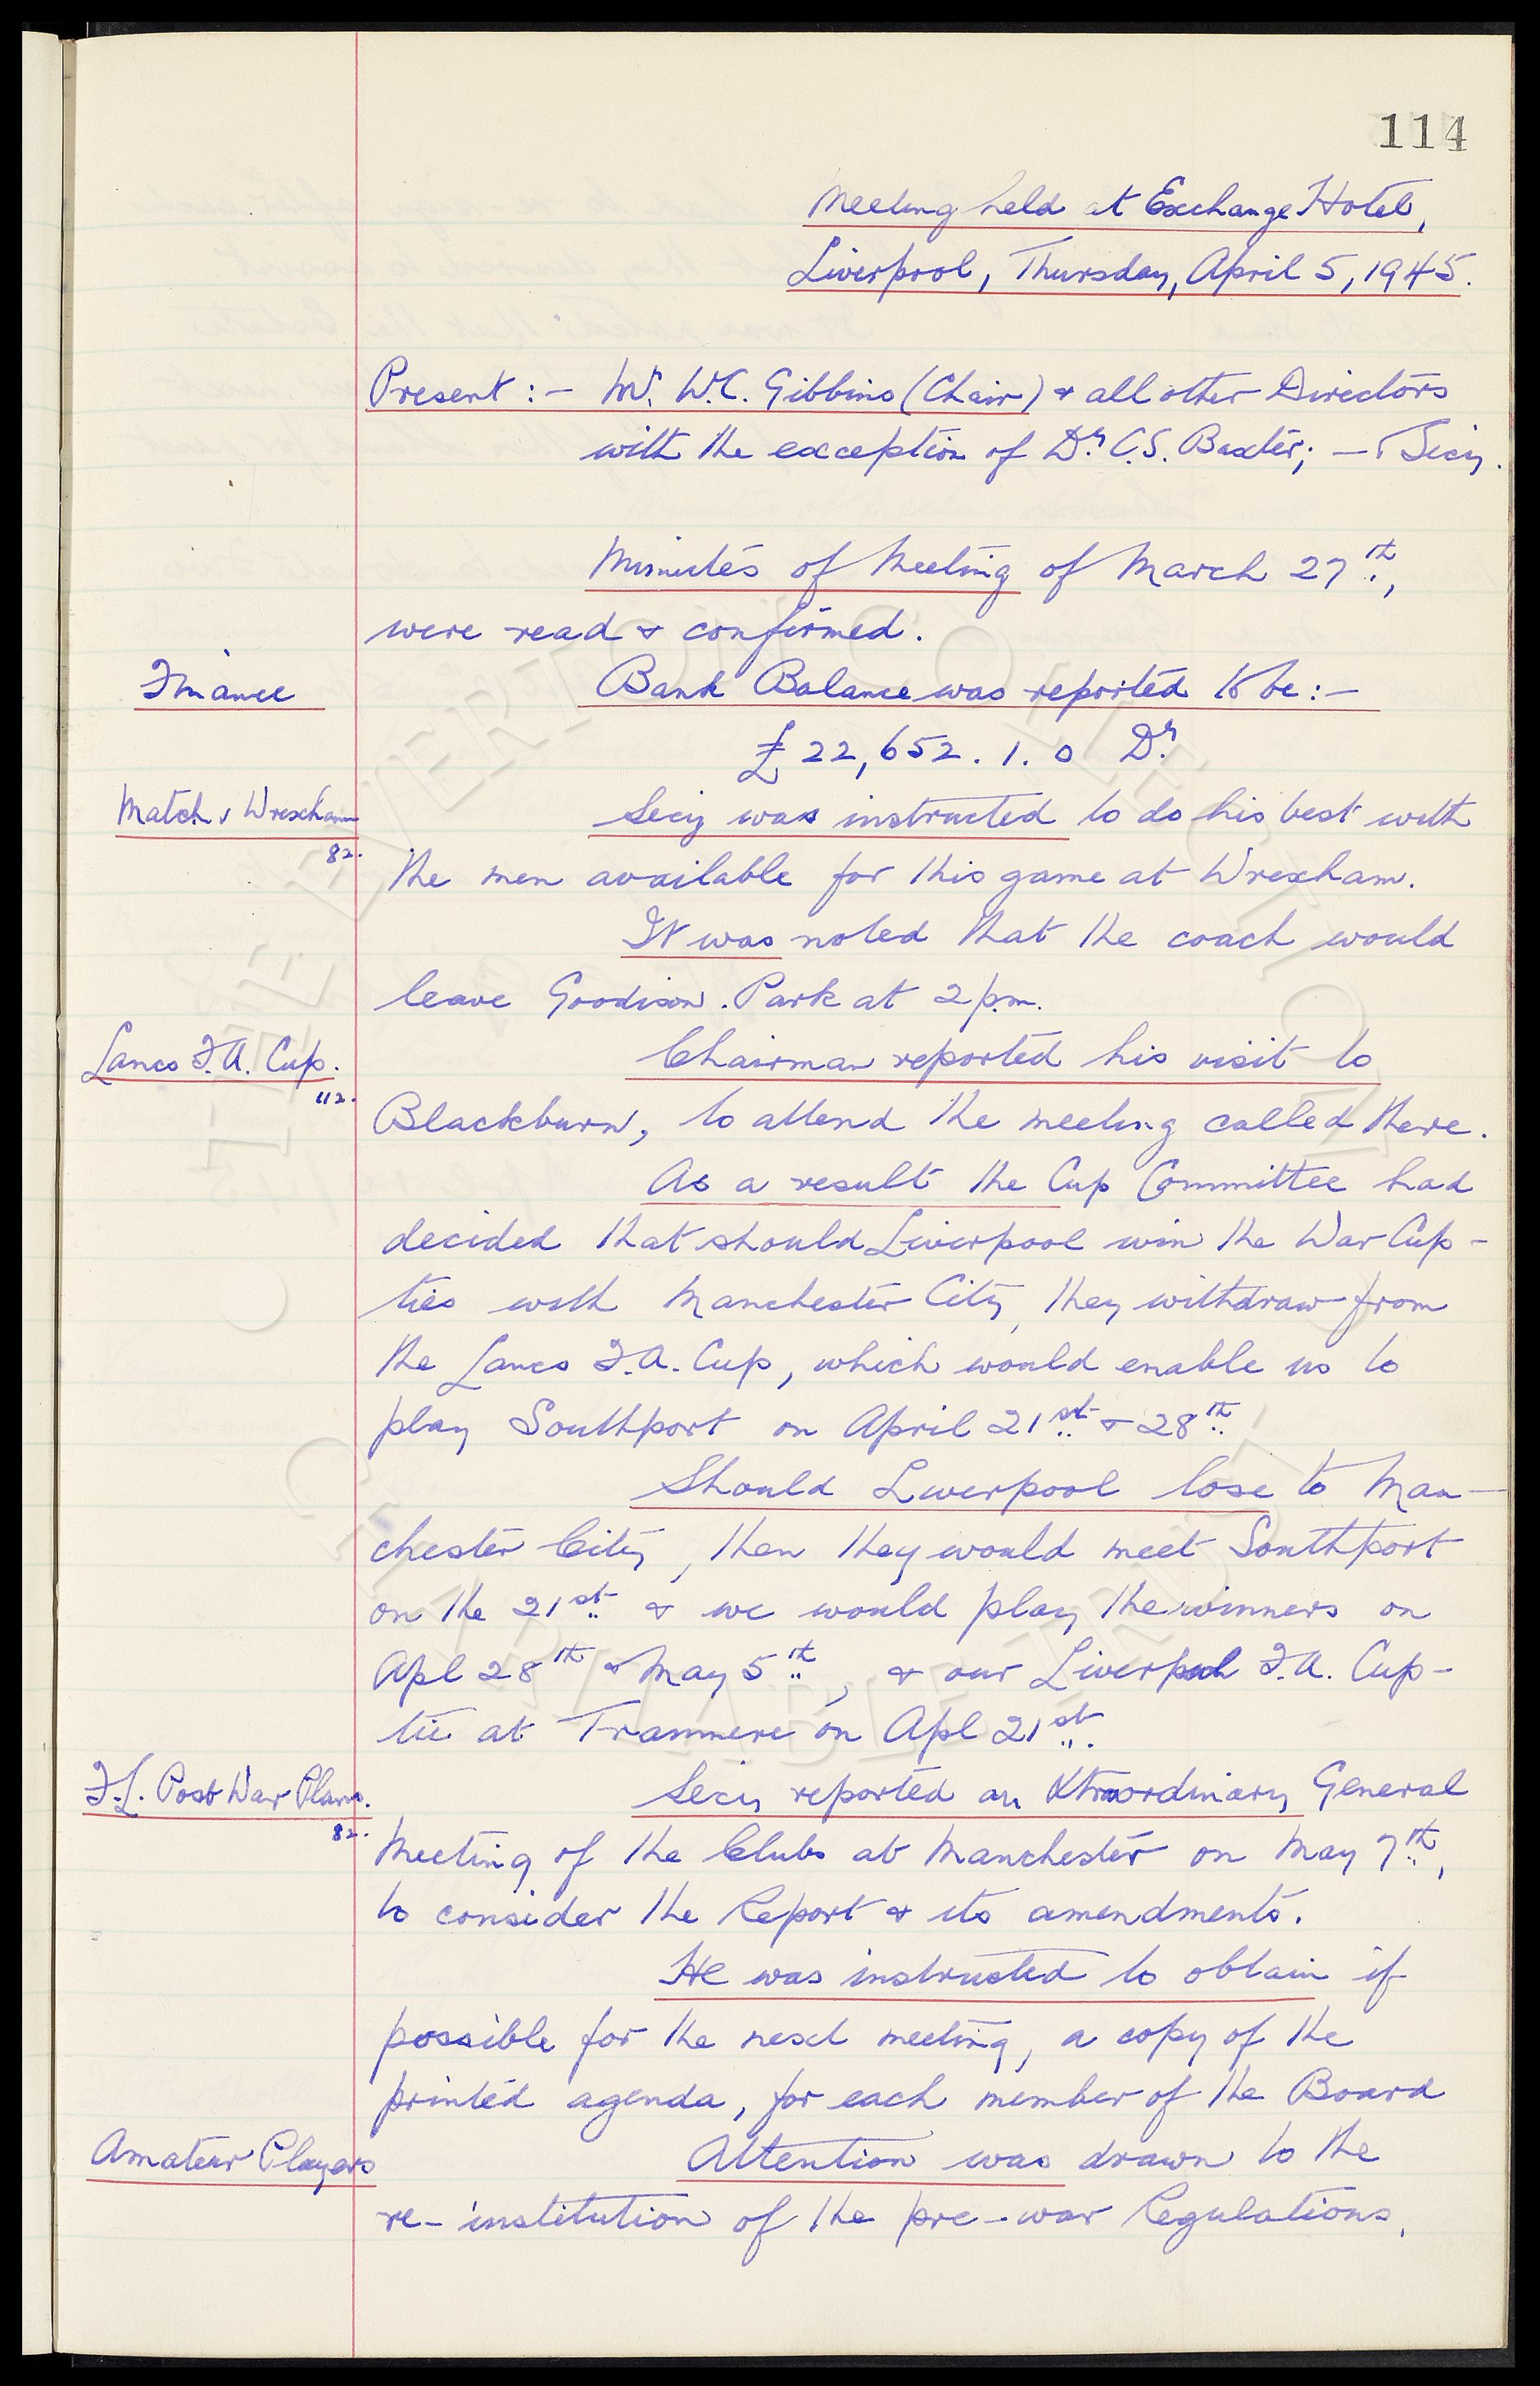 114
Meeting held at Exchange Hotel,
Liverpool, Thursday, April 5, 1945.
Present :- Mr. W.C. Gibbins (Chair) & all other Directors
with the exception of Dr. C.S. Baxter; - & Secy.
Minutes of Meeting of March 27th,
were read & confirmed.
Finance
Bank Balance was reported to be :-
£22,652. 1. 0 Dr.
Match v Wrexham
82.
Secy was instructed to do his best with
the men available for this game at Wrexham.
It was noted that the coach would
leave Goodison Park at 2 p.m.
Lancs F.A. Cup.
112.
Chairman reported his visit to
Blackburn, to attend the meeting called there.
As a result the Cup Committee had
decided that should Liverpool win the War Cup-
ties with Manchester City, they withdraw from
the Lancs F.A. Cup, which would enable us to
play Southport on April 21st & 28th.
Should Liverpool lose to Man-
chester City, then they would meet Southport
on the 21st & we would play the winners on
Apl 28th & May 5th, & our Liverpool F.A. Cup-
tie at Tranmere on Apl 21st.
F.L. Post War Plans.
82.
Secy reported an Xtraordinary General
Meeting of the Clubs at Manchester on May 7th,
to consider the Report & its amendments.
He was instructed to obtain if
possible for the next meeting, a copy of the
printed agenda, for each member of the Board
Amateur Players
Attention was drawn to the
re-institution of the pre-war Regulations,
THE EVERTON COLLECTION
CHARITABLE TRUST